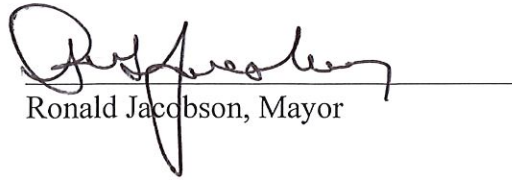 Ronald Jacobson, Mayor